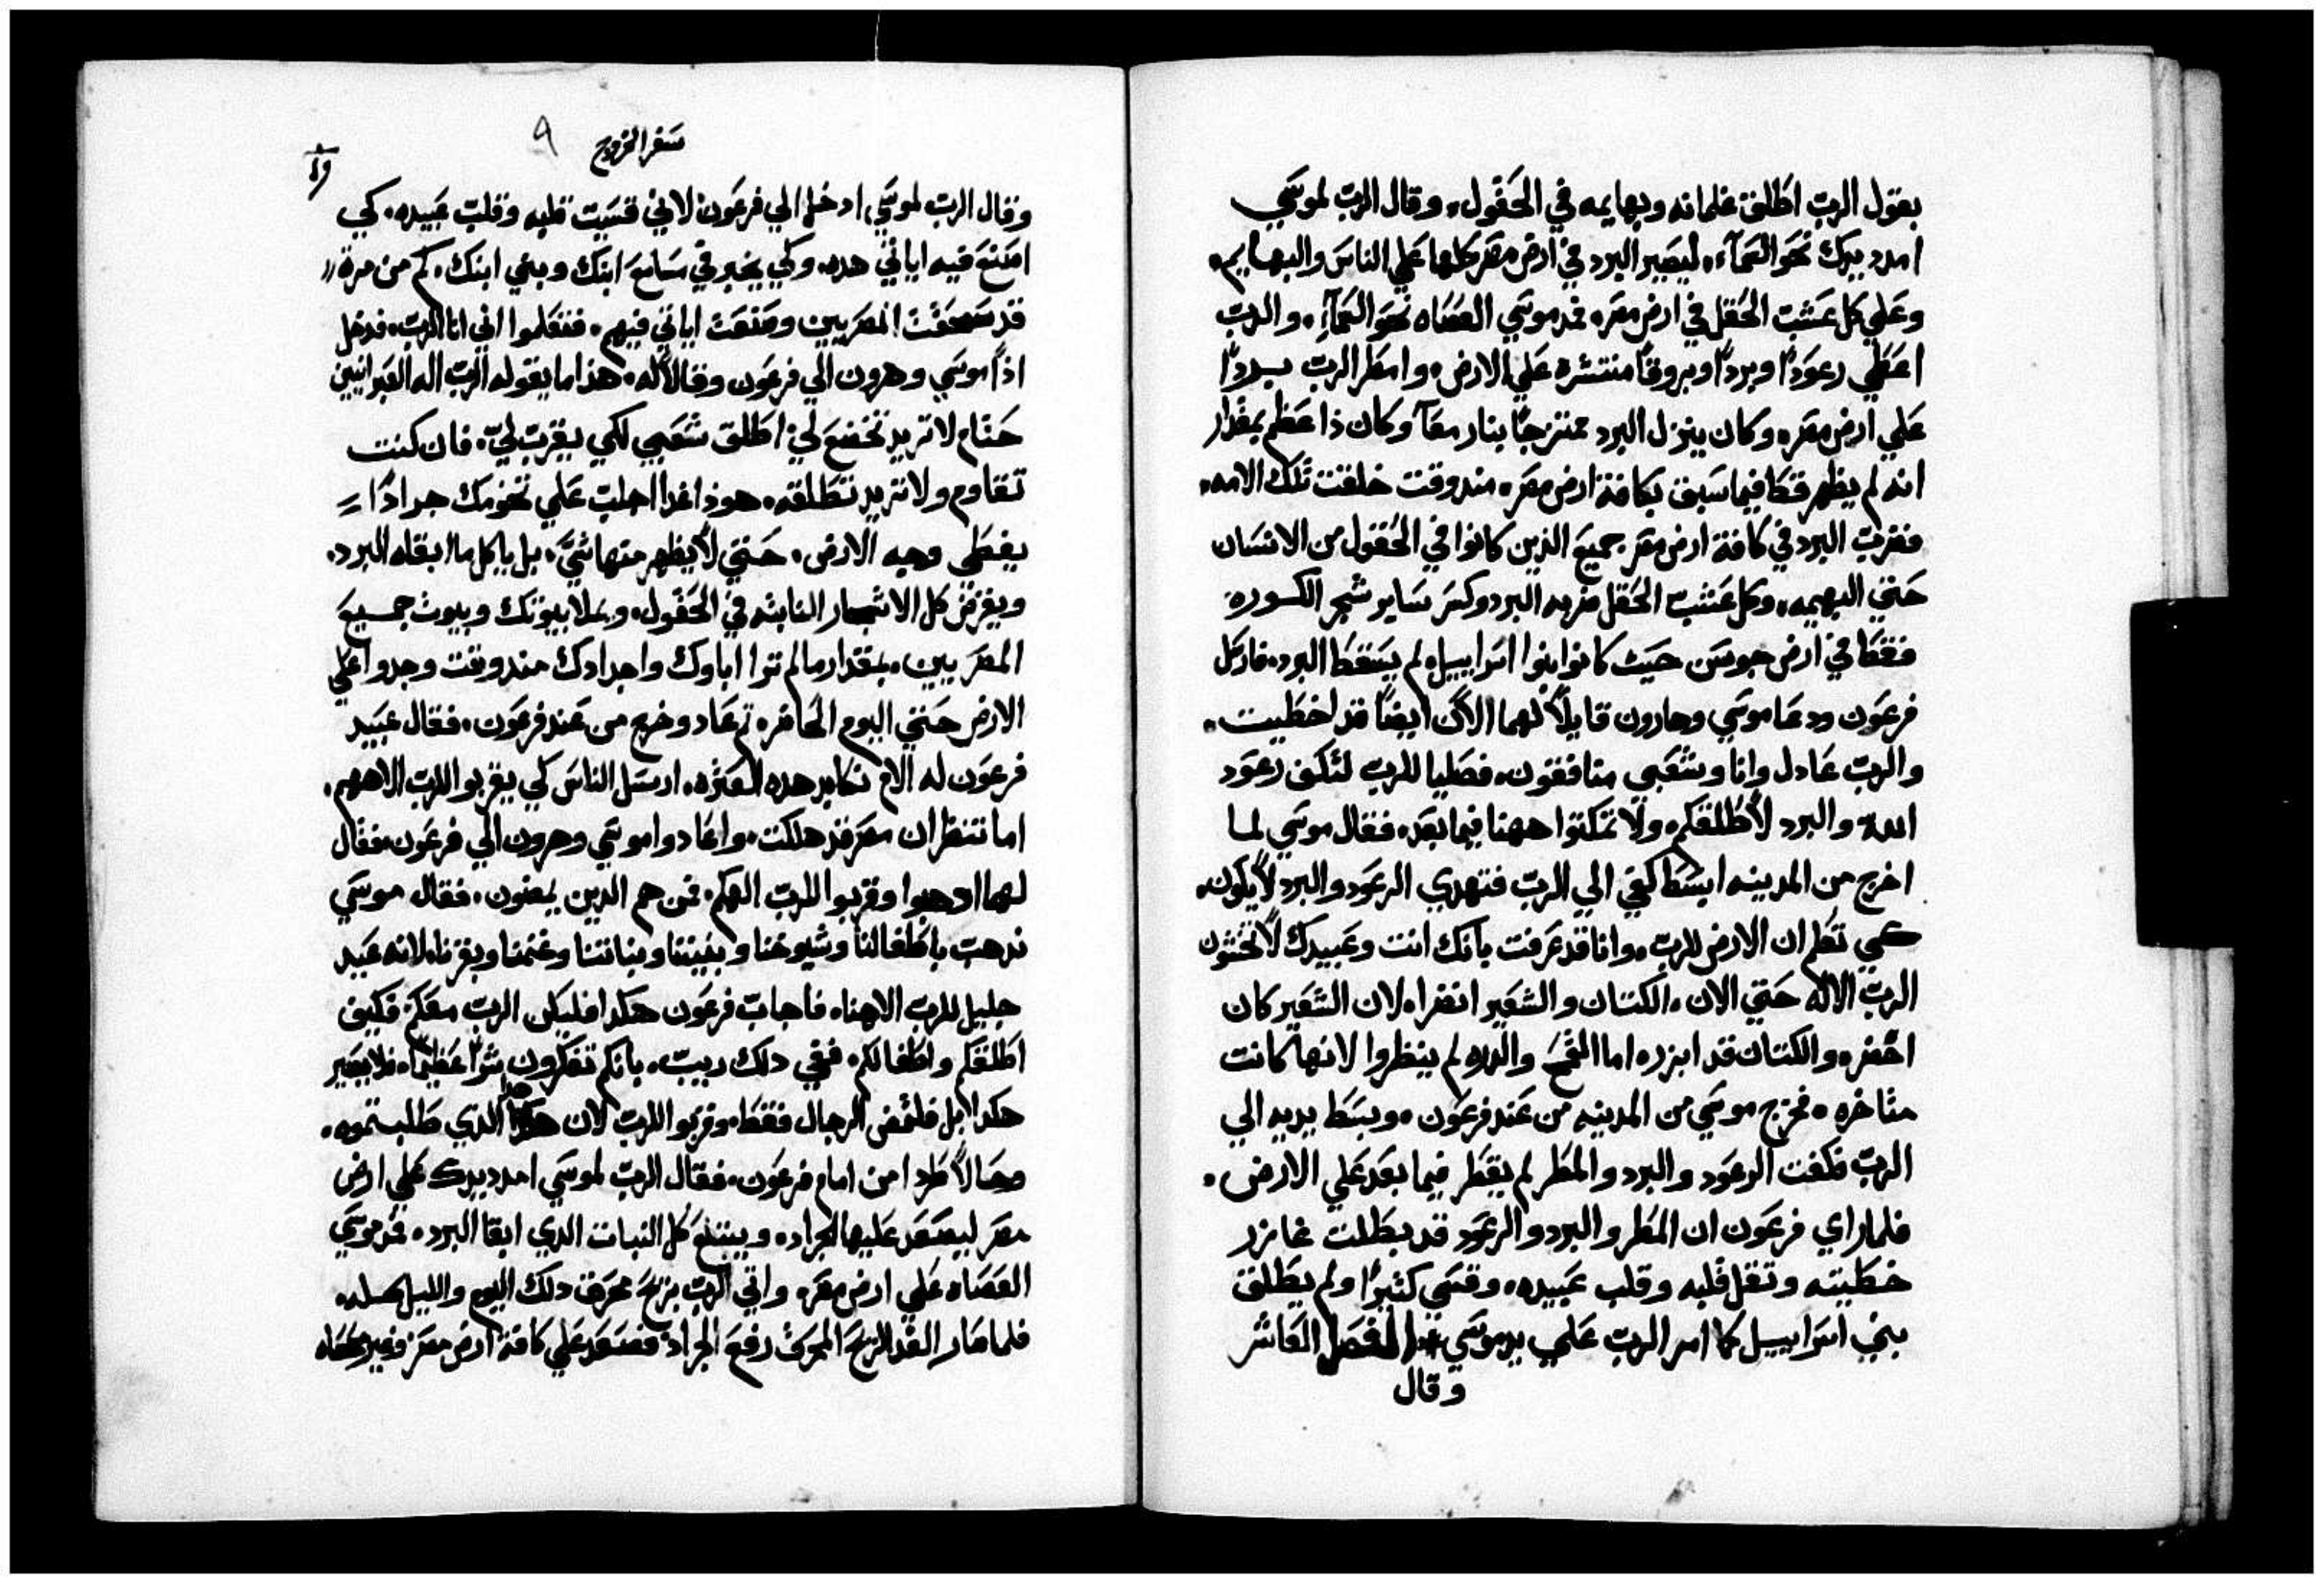 بقول الرب اطلق غلمانه وبهايمه في الحقول. وقال الرب لموسي
امدد يدك نحو السمآء. ليصير البرد في ارض مصر كلها علي الناس والبهايم.
وعلي كل عشب الحقل في ارض مصر. فمد موسي العصاه نحو السمآء. والرب
اعطي رعودًا وبردًا وبروقًا منتشره علي الارض. وامطر الرب بردًا
علي ارض مصر. وكان ينزل البرد ممتزجًا بنار معآ وكان ذا عظم بمقدار
انه لم يظهر قط فيما سبق بكافة ارض مصر. مند وقت خلقت تلك الامه.
فضرب البرد في كافة ارض مصر جميع الذين كانوا في الحقول من الانسان
حتي البهيمه. وكل عشب الحقل ضربه البرد وكسر ساير شجر الكوره
فقط في ارض جوسن حيث كانوا بنوا اسراييل لم يسقط البرد. فارسل
فرعون ودعا موسي وهارون قايلًا لهما الان ايضًا قد اخطيت.
والرب عادل وانا وشعبي منافقون. فصليا للرب لتكف رعود
الله والبرد لاطلقكم. ولا تمكتوا ههنا فيما بعد. فقال موسي لما
اخرج من المدينه ابسط كفي الي الرب فتهدي الرعود والبرد لا يكون.
كي تعلم ان الارض للرب. وانا قد عرفت بانك انت وعبيدك لا تخشون
الرب الاله حتي الان. الكتان والشعير انضرا. لان الشعير كان
اخضر. والكتان قد ابزر. اما القمح والدره لم ينظروا لانها كانت
متاخره. فخرج موسي من المدينه من عند فرعون. وبسط يديه الي
الرب فكفت الرعود والبرد والمطر لم يقطر فيما بعد علي الارض.
فلما راي فرعون ان المطر والبرد والرعود قد بطلت غازر
خطيته وتقل قلبه وقلب عبيده. وقسي كثيرًا ولم يطلق
بني اسراييل كما امر الرب علي يد موسي الفصل العاشر
وقال
سفر الخروج ٩
١٩
وقال الرب لموسي ادخل الي فرعون لاني قسيت قلبه وقلب عبيده. كي
اصنع فيه اياتي هده. وكي يخبر في سامع ابنك وبني ابنك. كم من مرة
قد سحقت المصريين وصنعت اياتي فيهم. فتعلموا اني انا الرب. فدخل
اذًا موسي وهرون الي فرعون وقالا له. هذا ما يقوله الرب اله العبرانيين
حتام لا تريد تخضع لي اطلق شعبي لكي يقرب لي. فان كنت
تقاوم ولا تريد تطلقه. هوذا غدا اجلب علي تخومك جرادًا
يغطي وجه الارض. حتي لا يظهر منها شي. بل ياكل ما ابقاه البرد.
ويقرض كل الاشجار النابته في الحقول. ويملا بيوتك وبيوت جميع
المصريين. بمقدار ما لم تروا اباوك واجدادك مند وقت وجدوا علي
الارض حتي اليوم الحاضر. تم عاد وخرج من عند فرعون. فقال عبيد
فرعون له الام نكابر هده العتره. ارسل الناس كي يقربوا للرب الاههم.
اما تنظر ان مصر قد هلكت. واعادوا موسي وهرون الي فرعون فقال
لهما ادهبوا وقربوا للرب الهكم. فمن هم الدين يمضون. فقال موسي
ندهب باطفالنا وشيوخنا وبنيننا وبناتنا وغنمنا وبقرنا. لانه عيد
جليل للرب الاهنا. فاجاب فرعون هكدا فليكن الرب معكم فكيف
اطلقكم واطفالكم. ففي دلك ريب. بانكم تفكرون شرًا عظيمًا. فلا يصير
هكدا بل فلتمض الرجال فقط. وقربوا للرب لان هدا الدي طلبتموه.
وحالًا طردا من امام فرعون. فقال الرب لموسي امدد يدك علي ارض
مصر ليصعد عليها الجراد. ويبتلع كل النبات الدي ابقا البرد. فمد موسي
العصاه علي ارض مصر. واتي الرب بريح محرق دلك اليوم والليل
فلما صار الغد الريح المحرق رفع الجراد فصعد علي كافة ارض مصر